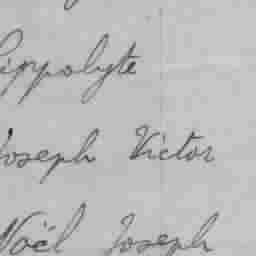 Hippolyte
Joseph Victor
Noël Joseph